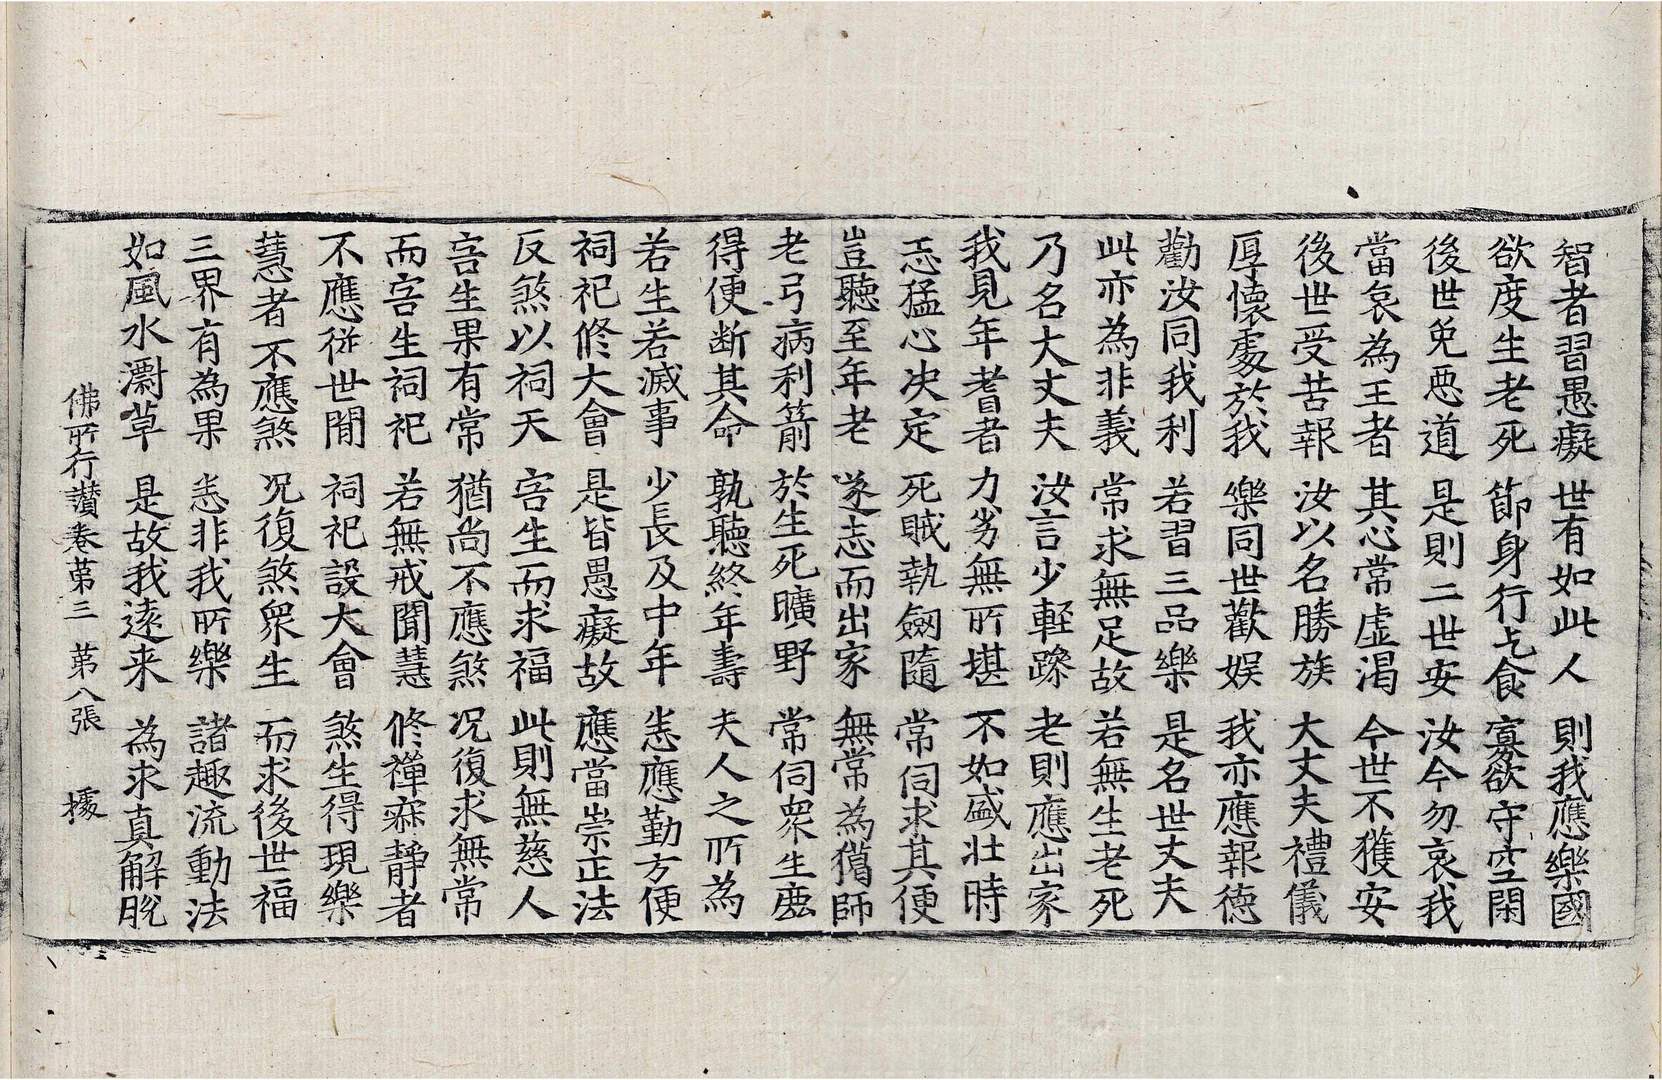 智者習愚癡 世有如此人 則我應樂國
欲度生老死 節身行乞食 寡欲守空閑
後世免惡道 是則二世安 汝今勿哀我
當哀為王者 其心常虛渴 今世不獲安
後世受苦報 汝以名勝族 大丈夫禮儀
厚懷處於我 樂同世歡娛 我亦應報德
勸汝同我利 若習三品樂 是名世丈夫
此亦為非義 常求無足故 若無生老死
乃名大丈夫 汝言少輕躁 老則應出家
我見年耆者 力劣無所堪 不如盛壯時
志猛心決定 死賊執劒隨 常伺求其便
豈聽至年老 遂志而出家 無常為獵師
老弓病利箭 於生死曠野 常伺衆生鹿
得便断其命 孰聽終年壽 夫人之所為
若生若滅事 少長及中年 悉應勤方便
祠祀修大會 是皆愚癡故 應當崇正法
反煞以祠天 害生而求福 此則無慈人
害生果有常 猶尚不應煞 况復求無常
而害生祠祀 若無戒聞慧 修禪寂靜者
不應從世間 祠祀設大會 煞生得現樂
慧者不應煞 况復煞衆生 而求後世福
三界有為果 悉非我所樂 諸趣流動法
如風水漂草 是故我遠来 為求真解脫
佛所行讚卷第三 第八張 據